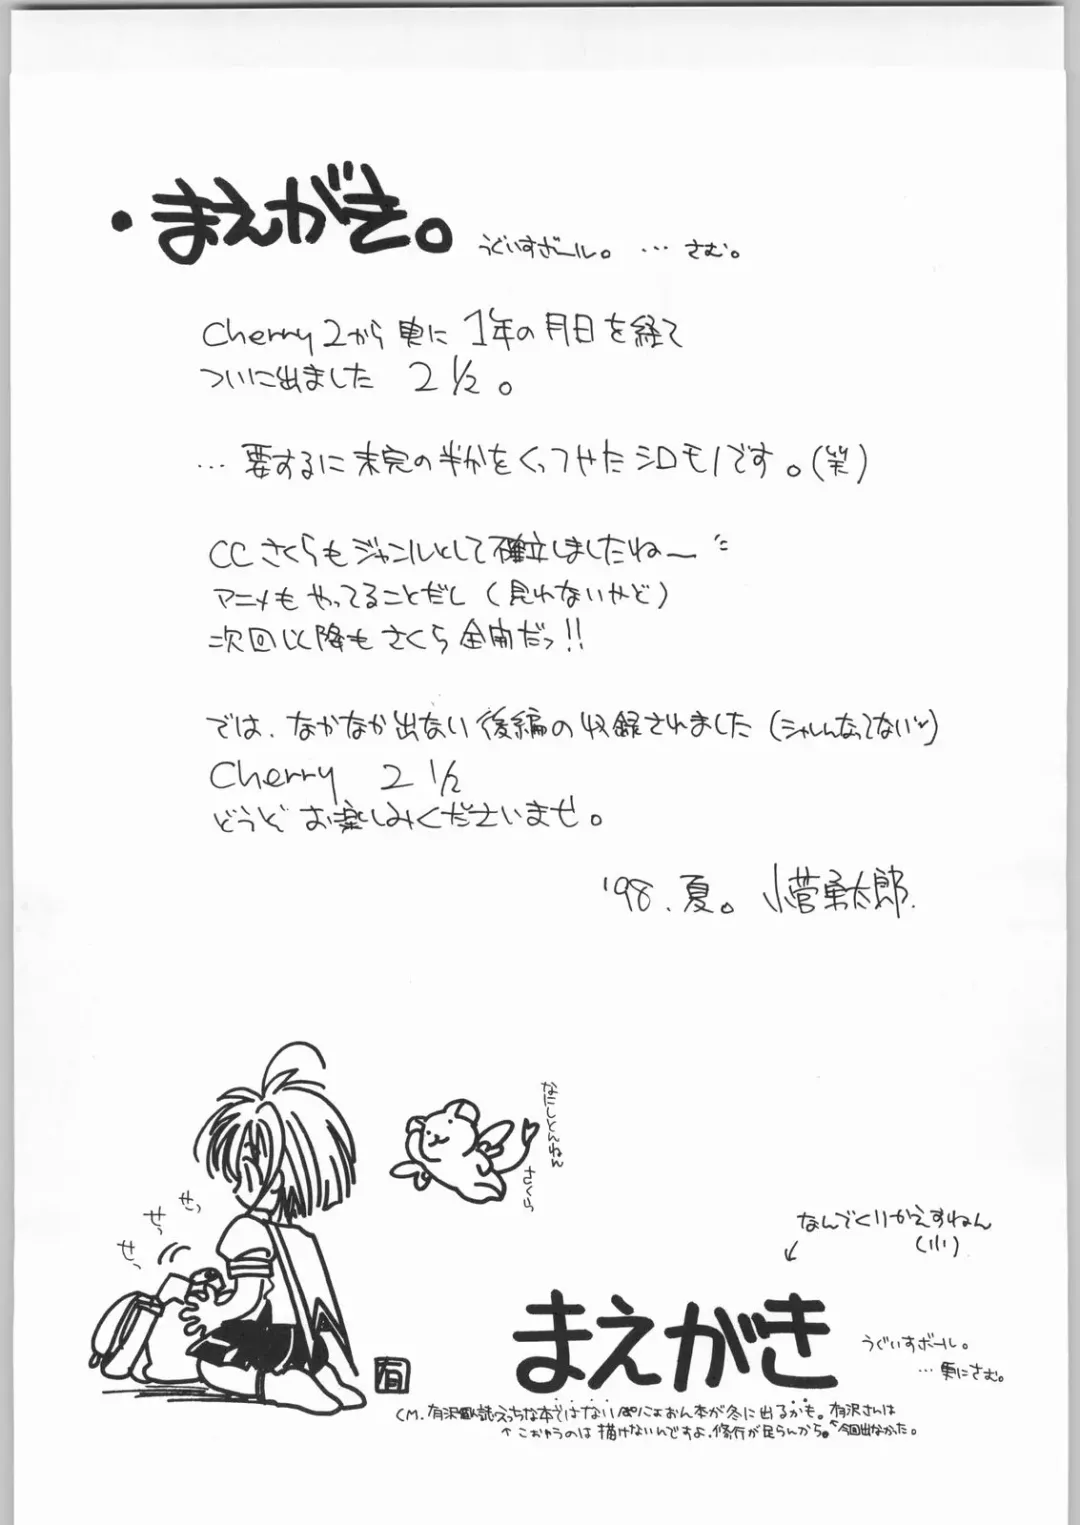 ・まえがき。
うぐいすボール。 … さむ。
Cherry 2から更に1年の月日を経て
ついに出ました 2 1/2。
… 要するに未完の半分をくっつけたシロモノです。(笑)
CCさくらもジャンルとして確立しましたね〜
アニメもやってることだし(見れないけど)
次回以降もさくら全開だっ!!
では、なかなか出ない後編の収録されました(シャレんなってない)
Cherry 2 1/2
どうぞお楽しみくださいませ。
'98.夏。 小菅勇太郎.
なにしとんねん
さくら
せっ
せっ
せっ
なんでくりかえすねん
(小)
まえがき
うぐいすボール。
… 更にさむ。
有
CM. 有沢 えっちな本ではない ぷにょおん本が冬に出るかも。有沢さんは
↑こおゆうのは描けないんですよ、修行が足らんから。今回出なかった。